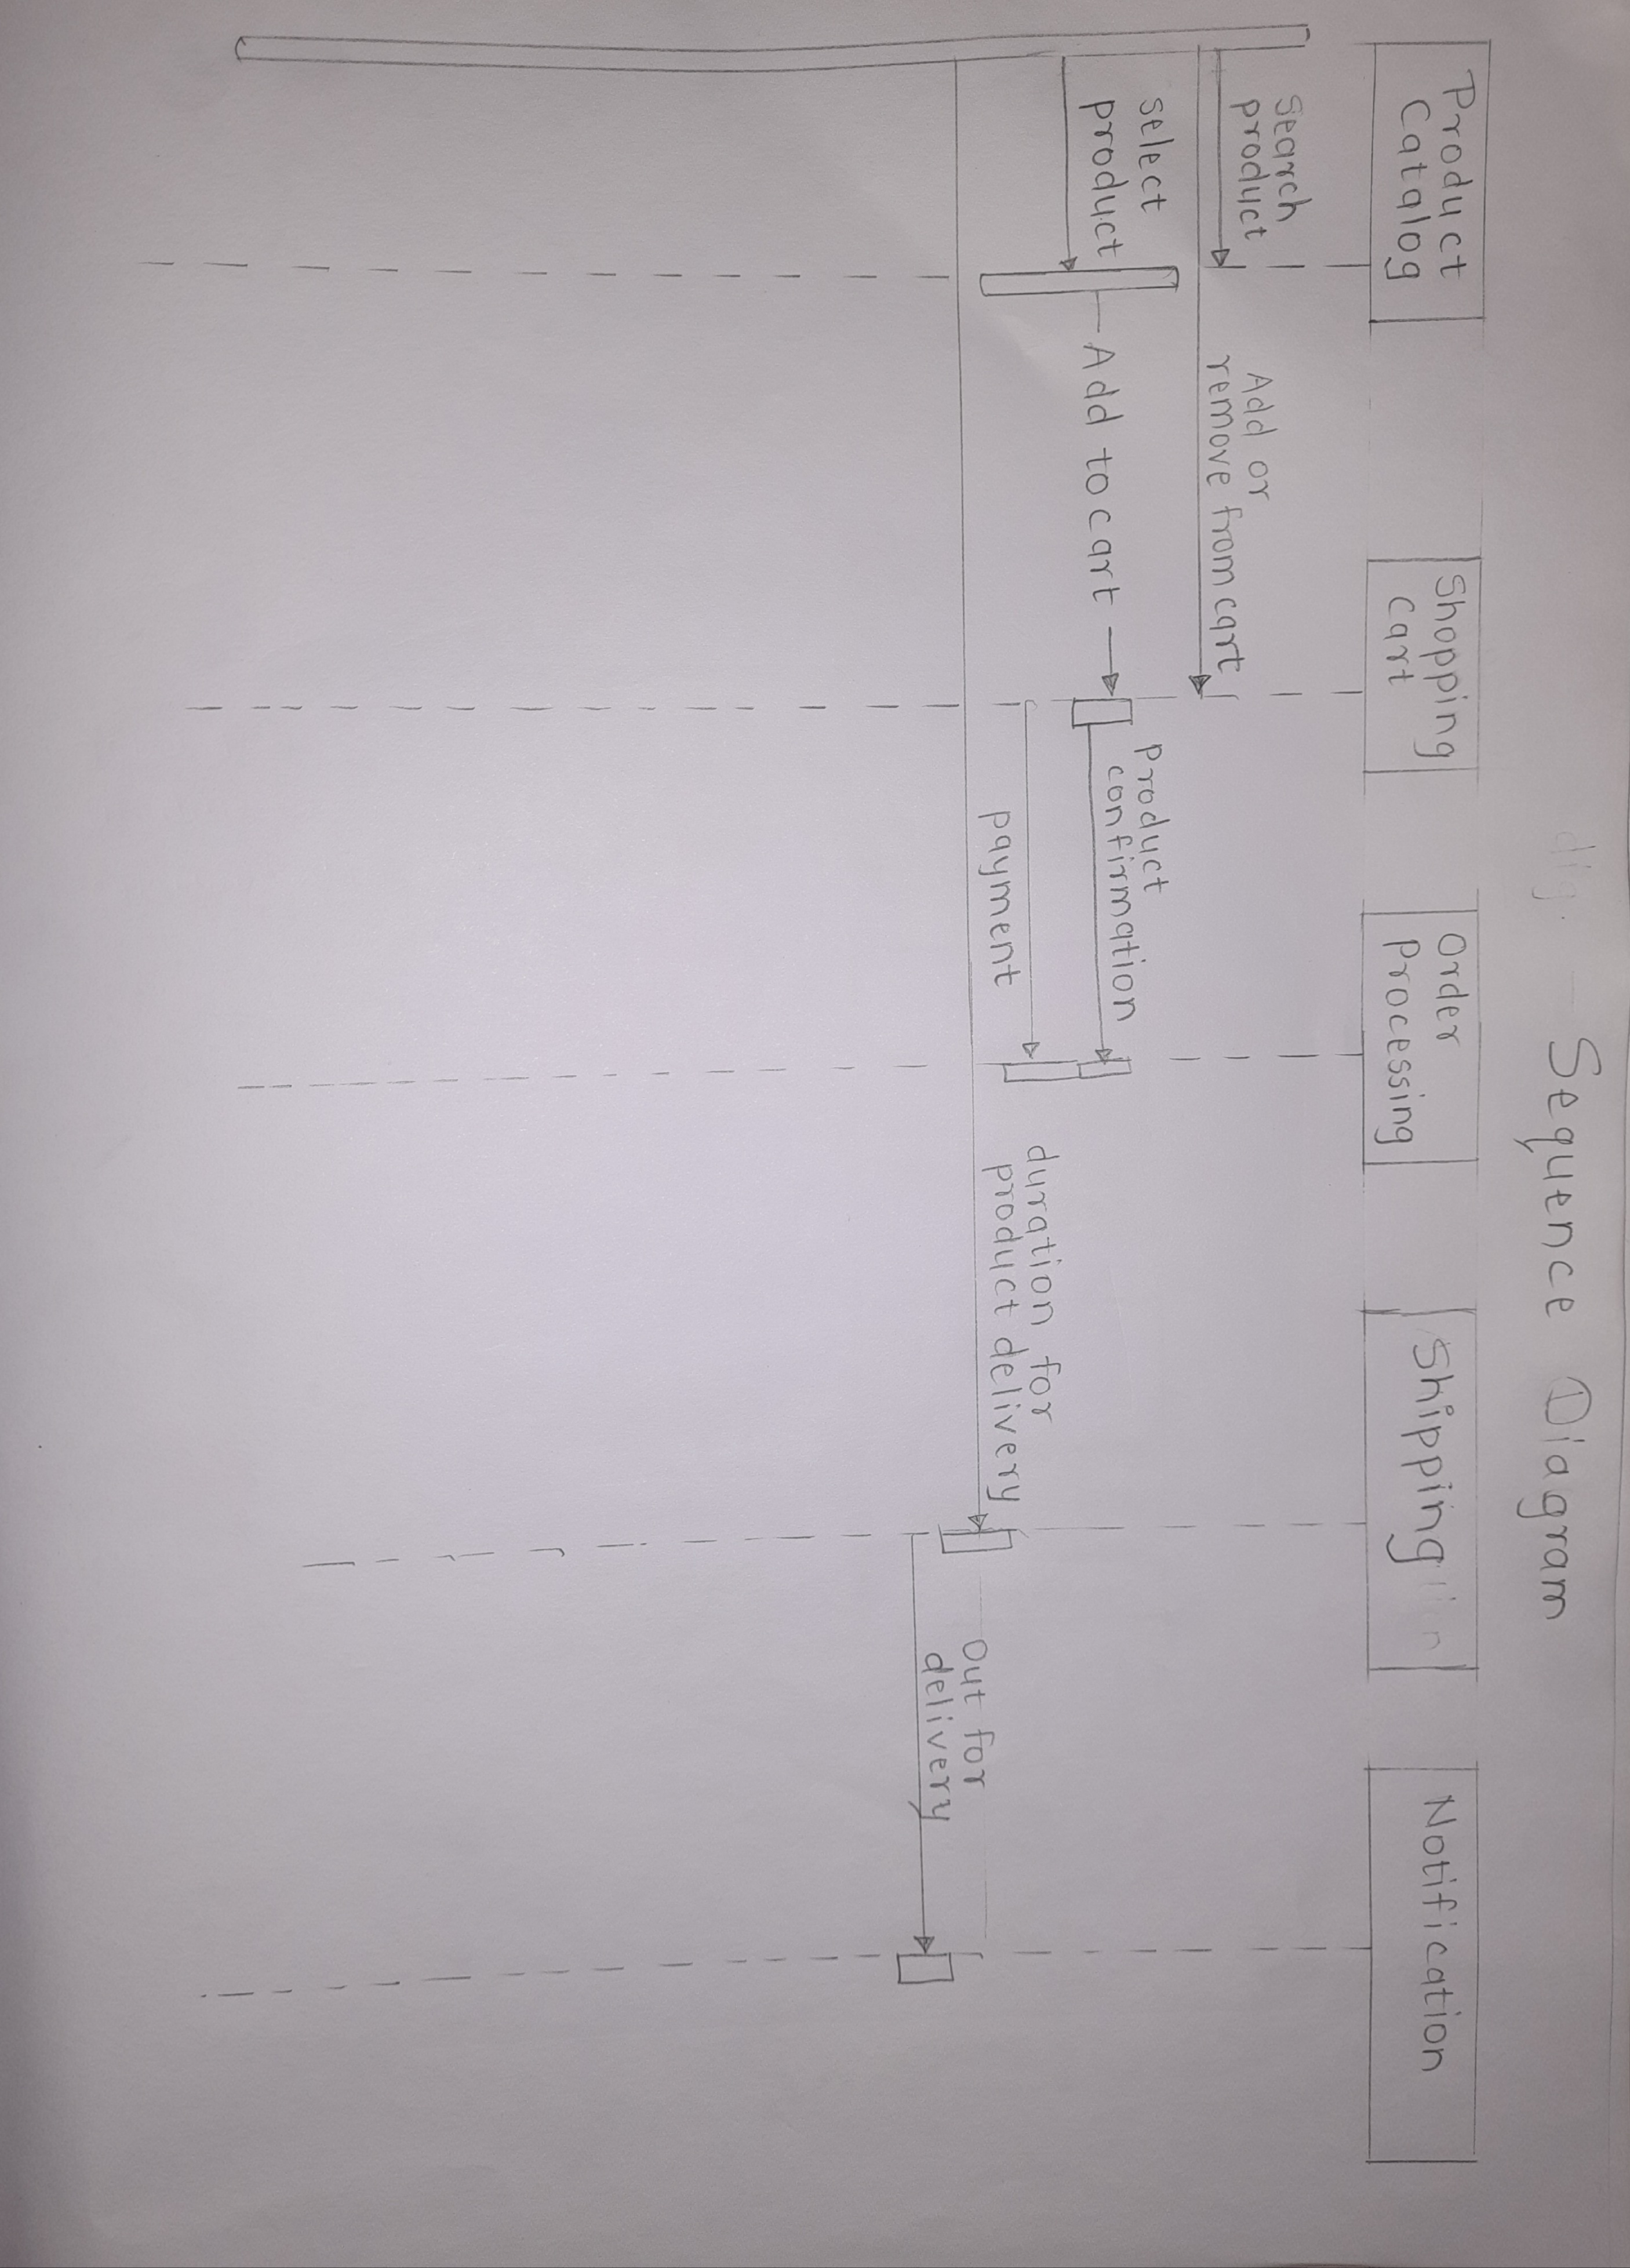 Sequence Diagram
Product
Catalog
Shopping
Cart
Order
Processing
Shipping
Notification
Search
product
Add or
remove from cart
Select
product
Add to cart
Product
confirmation
payment
duration for
product delivery
Out for
delivery